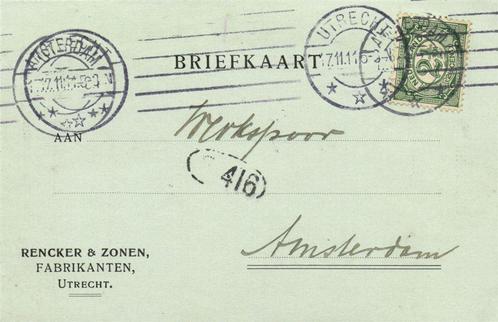 AMSTERDAM
UTRECHT
BRIEFKAART
AAN
Werkspoor
416
Amsterdam
RENCKER & ZONEN,
FABRIKANTEN,
UTRECHT.